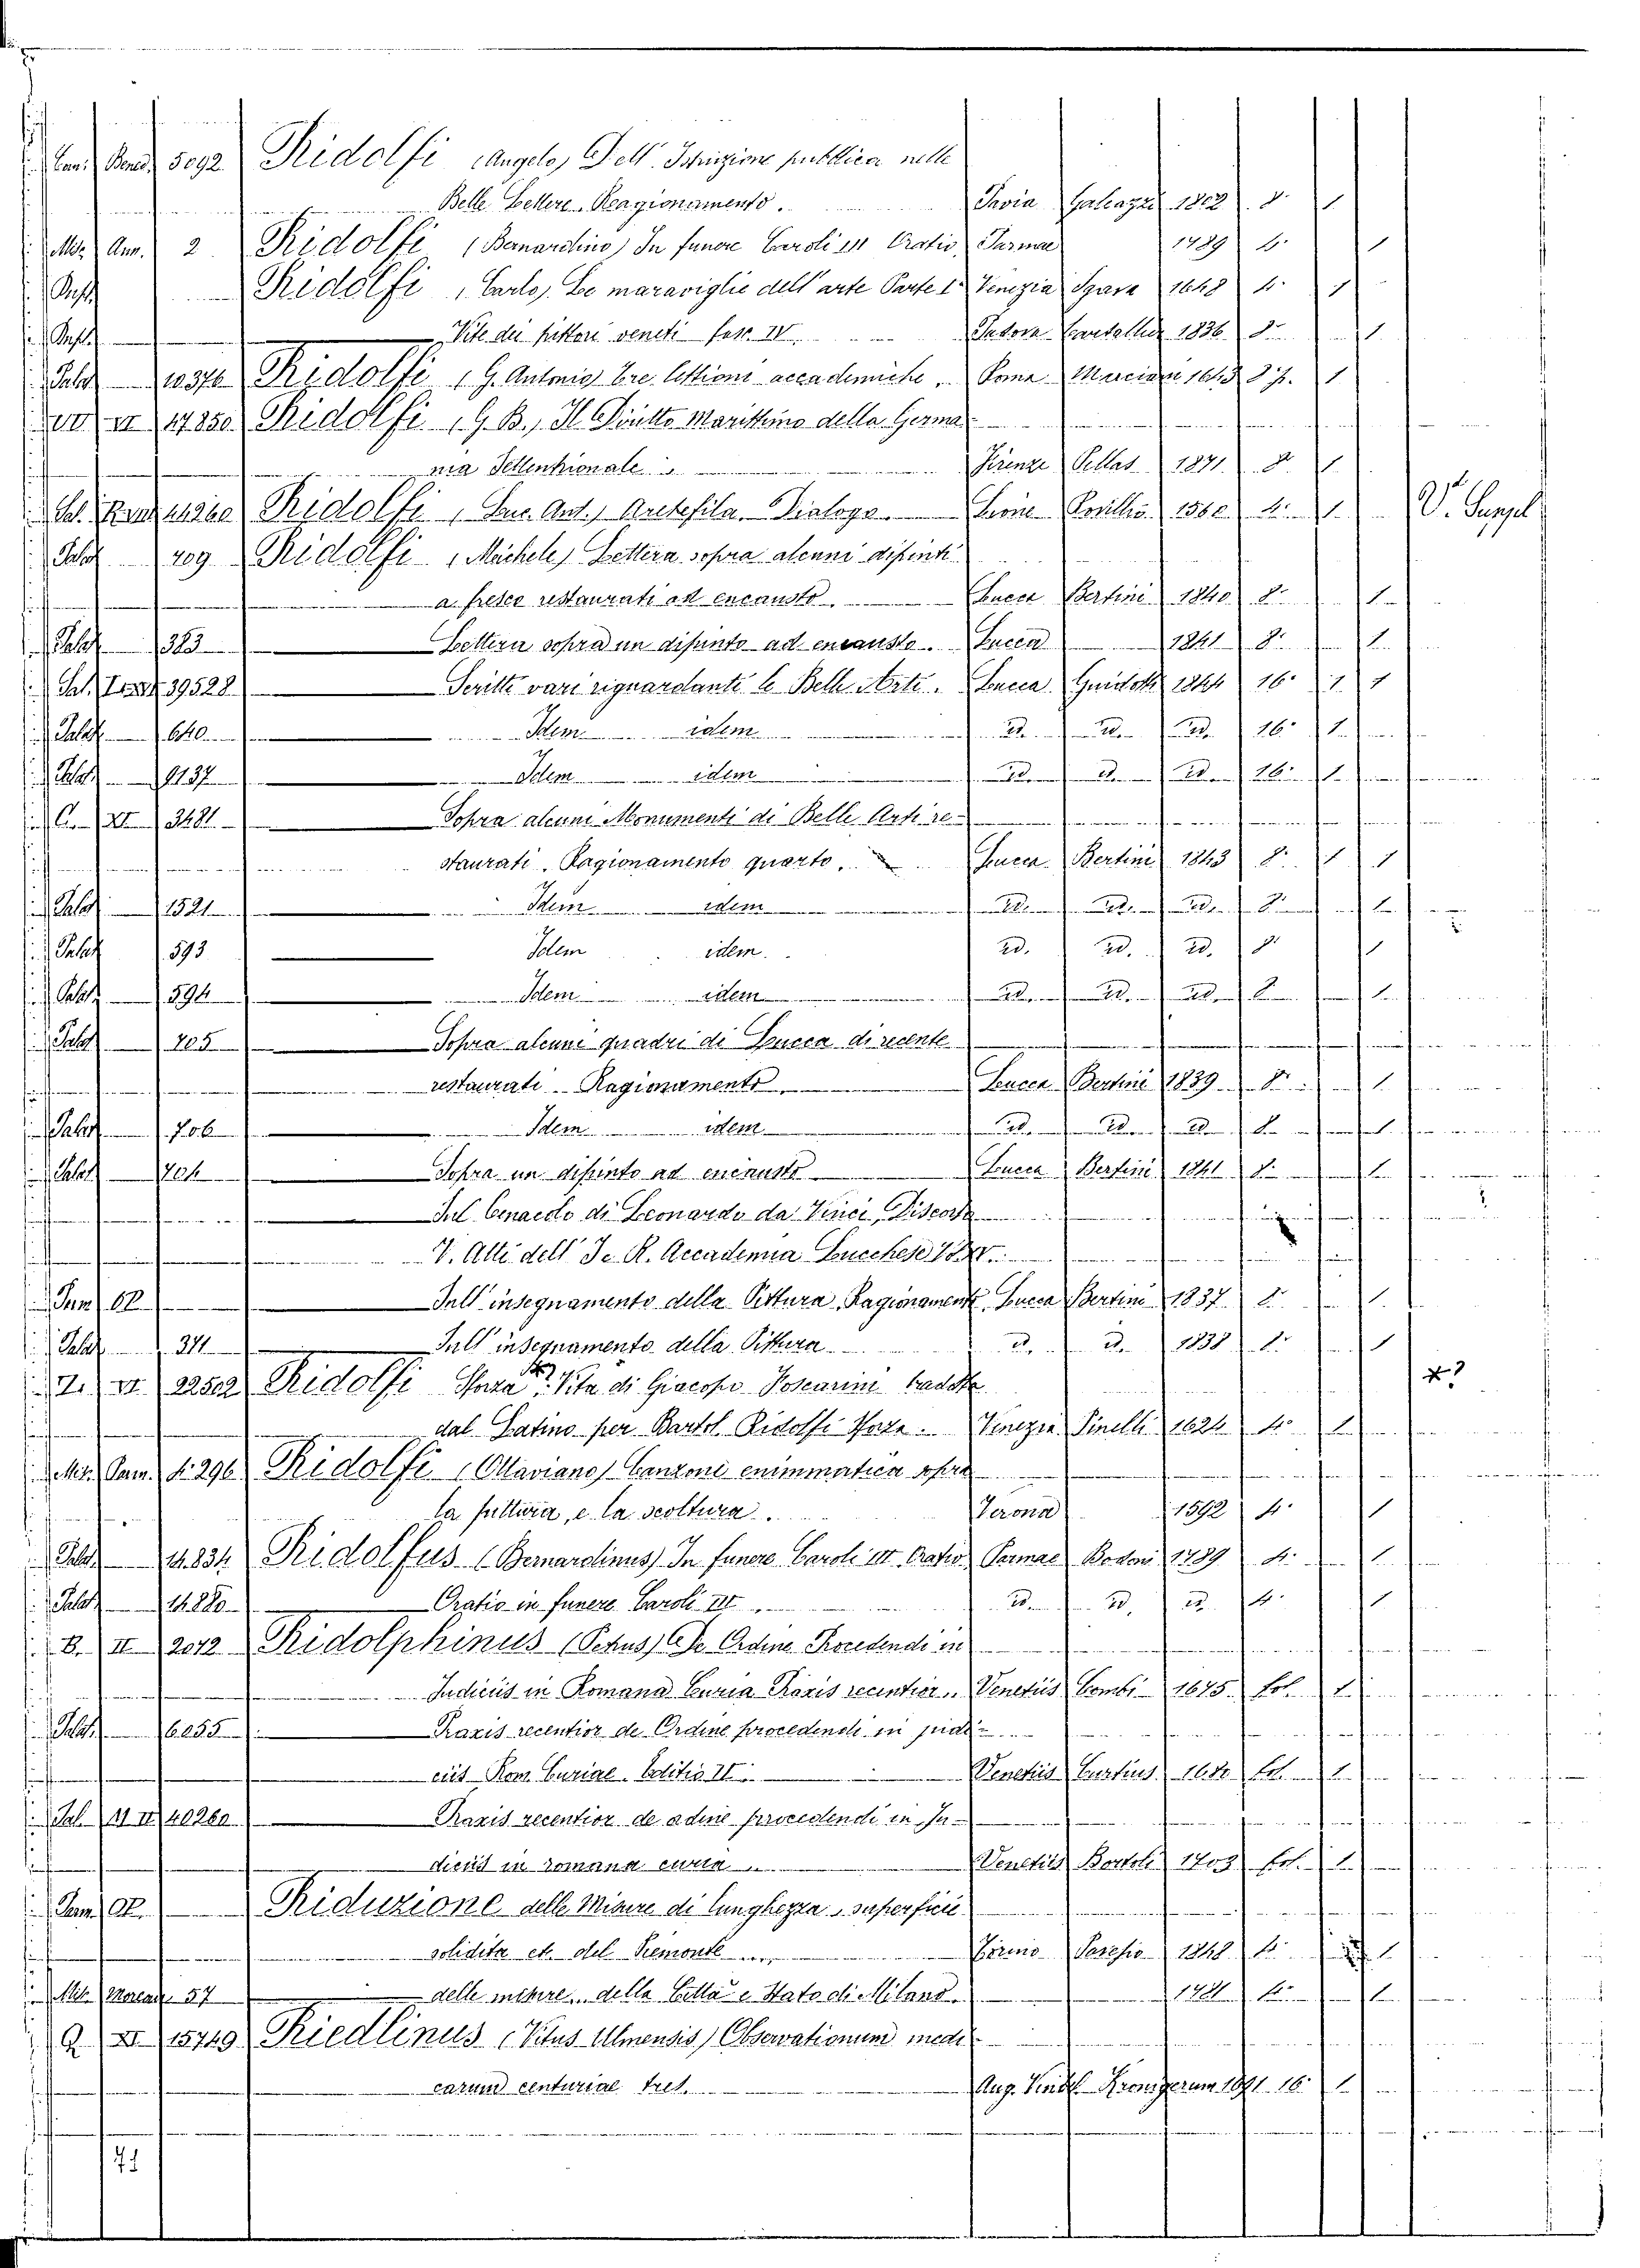 Bened. 5092 Ridolfi (Angelo) Dell' Istruzione pubblica nelle
Belle Lettere. Ragionamento. Pavia Galeazzi 1802 8. 1
Misc. Ann. 2 Ridolfi (Bernardino) In funere Caroli III Oratio. Parmae 1789 4. 1
Ridolfi (Carlo) Le maraviglie dell' arte Parte 1ª Venezia Sgava 1648 4. 1
Vite dei pittori veneti fasc. IV Padova Cartallier 1836 8. 1
Palat 10376 Ridolfi (G. Antonio) Tre lettioni accademiche. Roma 1
VI 17850 Ridolfi (G. B.) Il Diritto Marittimo della Germa
nia Settentrionale Firenze Pellas 1871 8. 1
Ridolfi (Luc. Ant.) Aretefila. Dialogo. Lione Rovillio 1560 4. 1
Palat 709 Ridolfi (Michele) Lettera sopra alcuni dipinti
a fresco restaurati ad encausto. Lucca Bertini 1840 8. 1
Palat 383 Lettera sopra un dipinto ad encausto. Lucca 1841 8. 1
39528 Scritti vari riguardanti le Belle Arti. Lucca Guidotti 1844 16. 1 1
Palat 640 Idem idem id. id. id. 16. 1
Palat 1137 Idem idem id. id. id. 16. 1
C. XI 3481 Sopra alcuni Monumenti di Belle Arti re-
staurati. Ragionamento quarto. Lucca Bertini 1843 8. 1 1
Palat 1521 Idem idem id. id. id. 8. 1
Palat 593 Idem idem id. id. id. 8. 1
Palat 594 Idem idem id. id. id. 8. 1
Palat 705 Sopra alcuni quadri di Lucca di recente
restaurati. Ragionamento Lucca Bertini 1839 8. 1
Palat 706 Idem idem id. id. id. 8. 1
Palat 704 Sopra un dipinto ad encausto Lucca Bertini 1841 8. 1
Sul Cenacolo di Leonardo da Vinci, Discorso
V. Atti dell' I. e R. Accademia Lucchese
Sull' insegnamento della Pittura. Ragionamento Lucca Bertini 1837 8. 1
Palat 371 Sull' insegnamento della Pittura id. id. 1838 8. 1
VI 22502 Ridolfi Sforza Vita di Giacopo Foscarini tradotta
dal Latino per Bartol. Ridolfi Sforza. Venezia Pinelli 1624 4. 1
Misc. 296 Ridolfi (Ottaviano) Canzone enimmatica sopra
la pittura, e la scoltura. Verona 1592 4. 1
Palat 14.834 Ridolfus (Bernardinus) In funere Caroli III. Oratio Parmae Bodoni 1789 4. 1
Palat 14.880 Oratio in funere Caroli III id. id. id. 4. 1
B. II 2012 Ridolphinus (Petrus) De Ordine Procedendi in
Judiciis in Romana Curia Praxis recentior. Venetiis Combi 1675 fol. 1
Palat 6.855 Praxis recentior de Ordine procedendi in judi-
ciis Rom. Curiae. Editio II. Venetiis Curtius 1680 fol. 1
40260 Praxis recentior de ordine procedendi in Ju-
diciis in romana curia Venetiis Bortoli 1703 fol. 1
Riduzione delle Misure di lunghezza, superficie
solidità etc. del Piemonte Torino Paresio 1848 8. 1
Misc. 57 delle misure della Città e Stato di Milano 1781 1
Q. XI 15749 Riedlinus (Vitus Ulmensis) Observationum medi-
carum centuriae tres. Aug. Vindel. Kronigerum 1691 16. 1
71